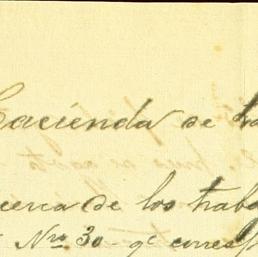 Hacienda de
cerca de los traba
Nro 30 - qe corresp